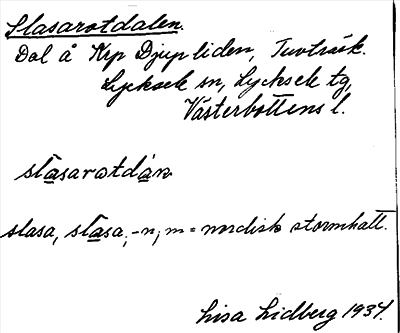 Slasarotdalen.
Dal å Krp Djupliden, Tuvträsk.
Lycksele sn, Lycksele tg,
Västerbottens l.
slasarotdán
slasa, slasa, -n, m = nordisk stormhatt.
Lisa Lidberg 1937.